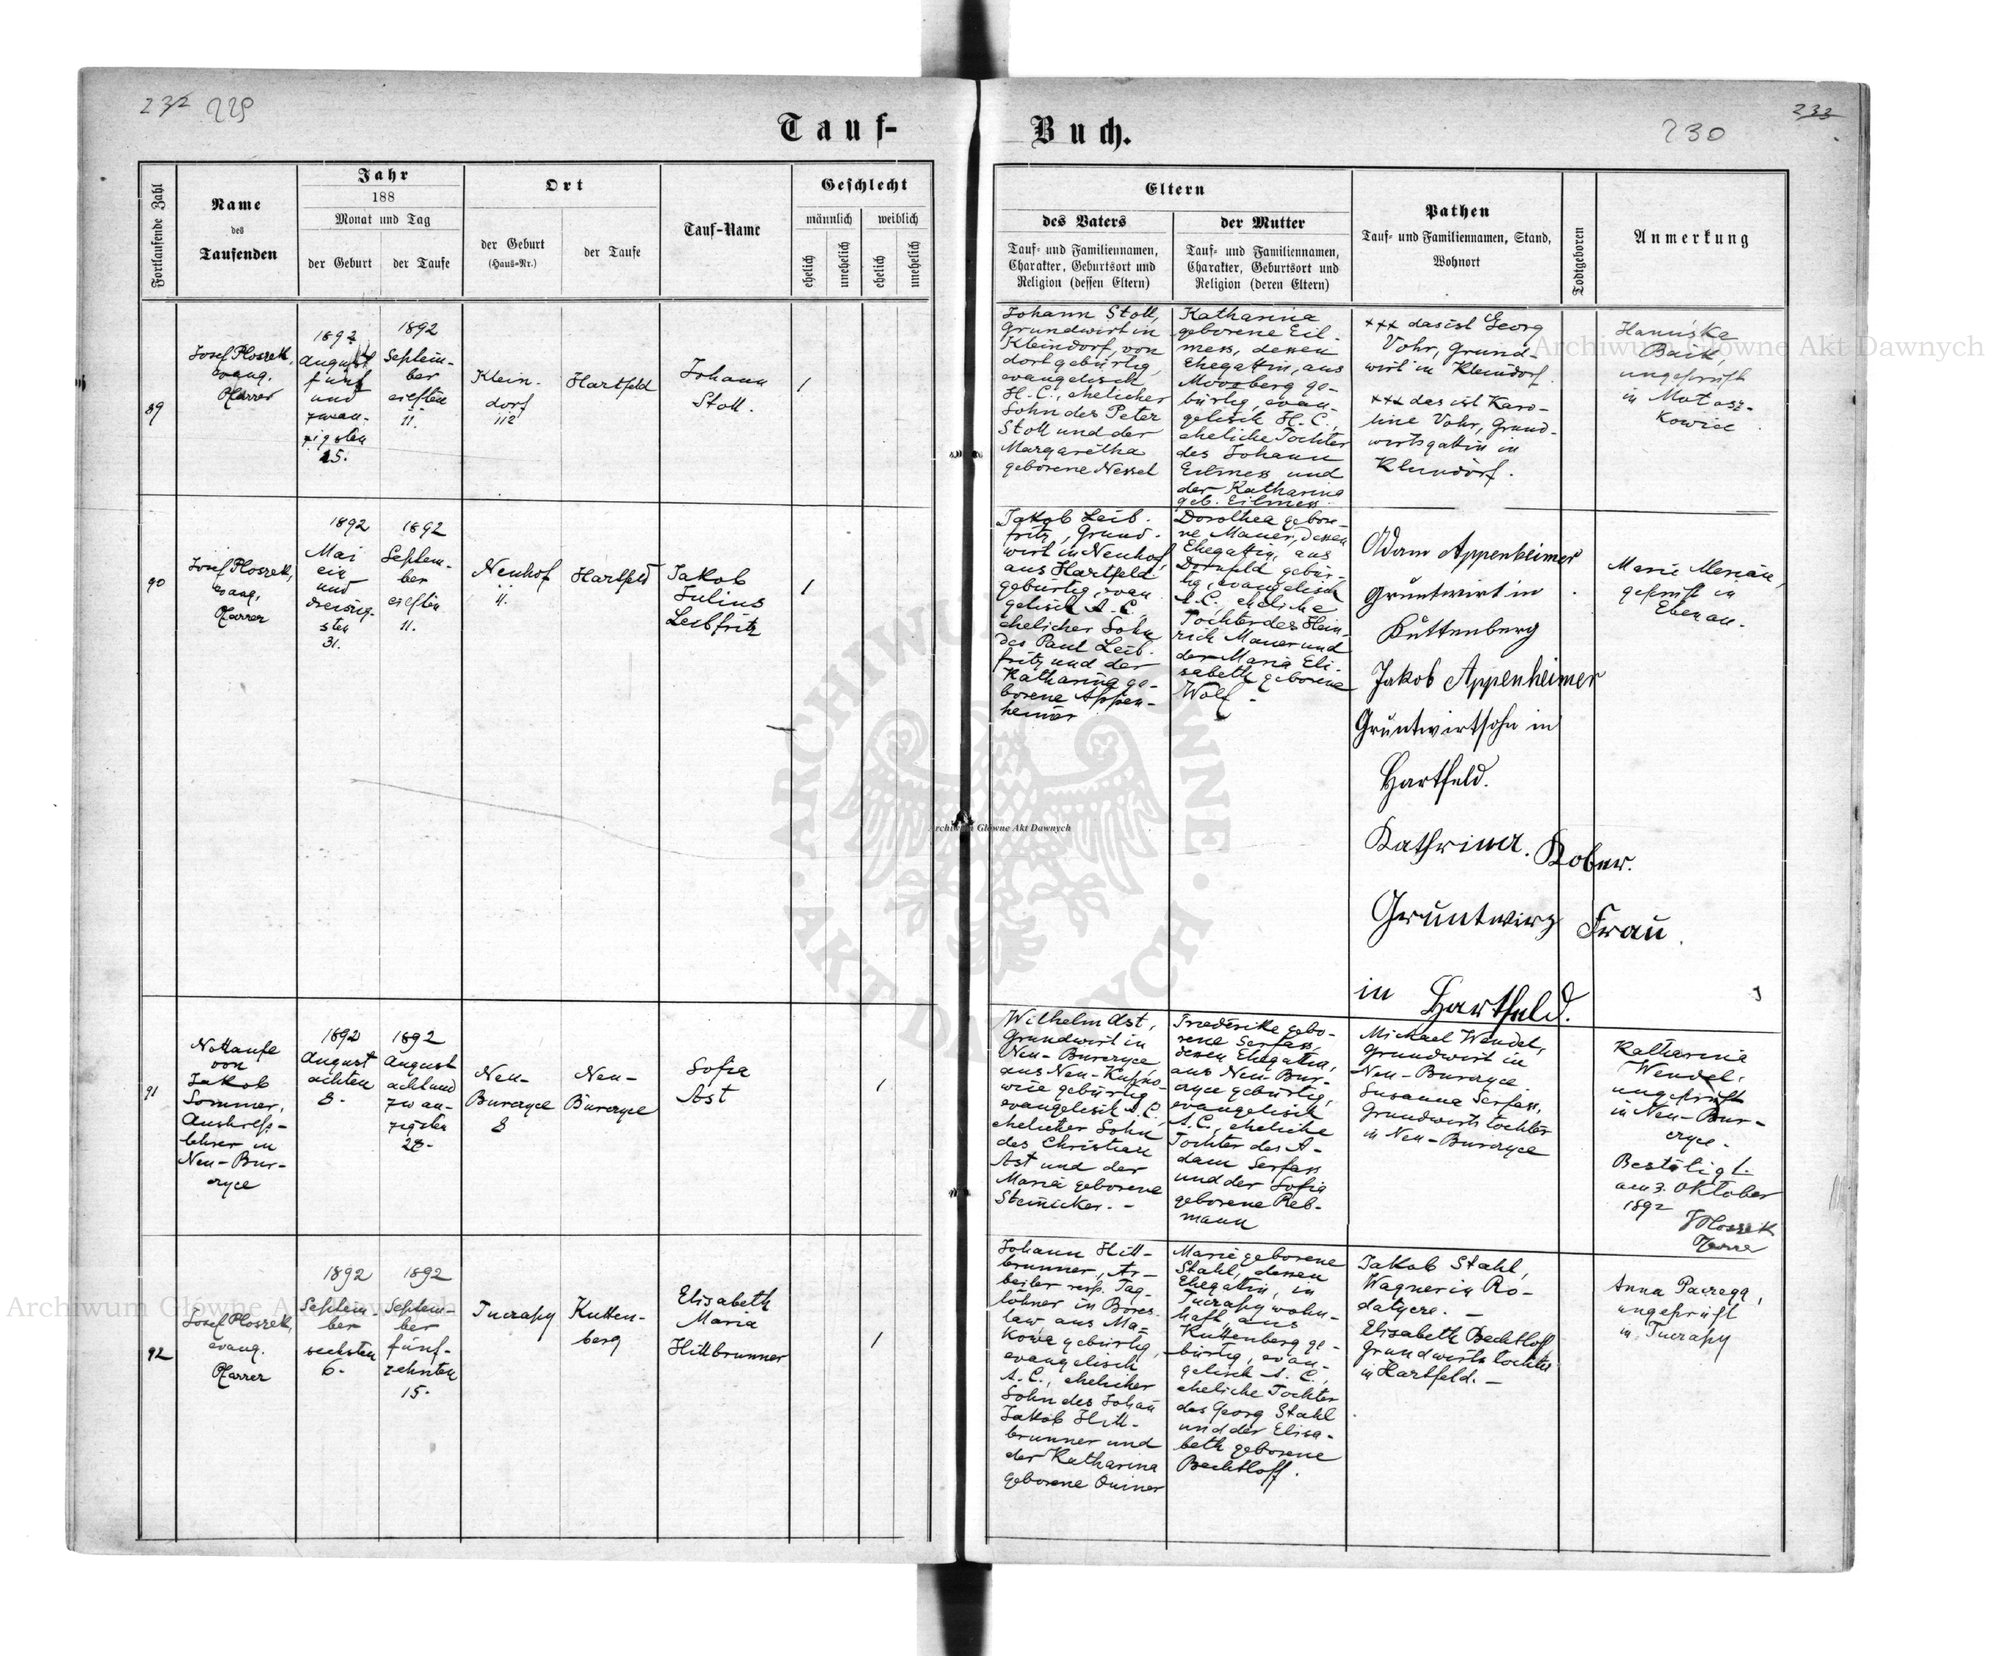 232 229
Tauf-
Buch.
230
233
Fortlaufende Zahl
Name
des
Taufenden
Jahr
188
Monat und Tag
der Geburt
der Taufe
Ort
der Geburt
(Haus=Nr.)
der Taufe
Tauf-Name
Geschlecht
männlich
weiblich
ehelich
unehelich
ehelich
unehelich
Eltern
des Vaters
Tauf= und Familiennamen,
Charakter, Geburtsort und
Religion (dessen Eltern)
der Mutter
Tauf= und Familiennamen,
Charakter, Geburtsort und
Religion (deren Eltern)
Pathen
Tauf- und Familiennamen, Stand,
Wohnort
Todtgeboren
Anmerkung
89
Josef Ploszek,
evang.
Pfarrer
1892
August
fünf
und
zwan-
zigsten
25.
1892
Septem-
ber
eilften
11.
Klein-
dorf
112
Hartfeld
Johann
Stoll.
1
Johann Stoll,
Grundwirt in
Kleindorf, von
dort gebürtig,
evangelisch
H.C., ehelicher
Sohn des Peter
Stoll und der
Margaretha
geborene Nessel
Katharina
geborene Eil-
mess, dessen
Ehegattin, aus
Moosberg ge-
bürtig, evan-
gelisch H.C.,
eheliche Tochter
des Johann
Eilmess und
der Katharina
geb. Eilmess.
+++ das ist Georg
Vohr, Grund-
wirt in Kleindorf.
+++ das ist Karo-
line Vohr, Grund-
wirtsgattin in
Kleindorf.
Hanuśka
Baik,
ungeprüft
in Motosz-
kowice
90
Josef Ploszek,
evang.
Pfarrer
1892
Mai
ein
und
dreissig-
sten
31.
1892
Septem-
ber
eilften
11.
Neuhof
4.
Hartfeld
Jakob
Julius
Leibfritz
1
Jakob Leib-
fritz, Grund-
wirt in Neuhof,
aus Hartfeld
gebürtig, evan-
gelisch A.C.,
ehelicher Sohn
des Paul Leib-
fritz und der
Katharina ge-
borene Appen-
heimer
Dorothea gebore-
ne Mauer, dessen
Ehegattin, aus
Dornfeld gebür-
tig, evangelisch
A.C., eheliche
Tochter des Hein-
rich Mauer und
der Maria Eli-
sabeth geborene
Wolf.
Adam Appenheimer
Gruntwirt in
Kuttenberg
Jakob Appenheimer
Gruntwirtsohn in
Hartfeld.
Kathrina. Kober.
Gruntwirz Frau.
in Hartfeld.
Marie Merian,
geprüft in
Ebenau.
91
Nottaufe
von
Jakob
Sommer,
Aushilfs-
lehrer in
Neu-Bur-
czyce
1892
August
achten
8.
1892
August
achtund
zwan-
zigsten
28.
Neu-
Burczyce
8
Neu-
Burczyce
Sofia
Ast
1
Wilhelm Ast,
Grundwirt in
Neu-Burczyce
aus Neu-Kupno-
wice gebürtig,
evangelisch A.C.,
ehelicher Sohn
des Christian
Ast und der
Maria geborene
Steinicker. -
Friederike gebo-
rene Serfass,
dessen Ehegattin,
aus Neu-Bur-
czyce gebürtig,
evangelisch
A.C., eheliche
Tochter des A-
dam Serfass
und der Sofia
geborene Reb-
mann
Michael Wendel,
Grundwirt in
Neu-Burczyce.
Susanna Serfass,
Grundwirtstochter
in Neu-Burczyce
Katharina
Wendel,
ungeprüft
in Neu-Bur-
czyce.
Bestätigt
am 3. Oktober
1892
JPloszek
Pfarrer
92
Josef Ploszek,
evang.
Pfarrer
1892
Septem-
ber
sechsten
6.
1892
Septem-
ber
fünf-
zehnten
15.
Tuczapy
Kutten-
berg
Elisabeth
Maria
Hittbrunner
1
Johann Hitt-
brunner, Ar-
beiter resp. Tag-
löhner in Bores-
law aus Ma-
kowa gebürtig,
evangelisch
A.C., ehelicher
Sohn des Johan
Jakob Hitt-
brunner und
der Katharina
geborene Quiner
Marie geborene
Stahl, dessen
Ehegattin, in
Tuczapy wohn-
haft, aus
Kuttenberg ge-
bürtig, evan-
gelisch A.C.,
eheliche Tochter
des Georg Stahl
und der Elisa-
beth geborene
Bechtloff.
Jakob Stahl,
Wagner in Ro-
datycze. -
Elisabeth Bechtloff
Grundwirtstochter
in Hartfeld. -
Anna Paczega,
ungeprüft
in Tuczapy
Archiwum Główne Akt Dawnych
Archiwum Główne Akt Dawnych
Archiwum Główne Akt Dawnych
ARCHIWUM GŁÓWNE · AKT DAWNYCH ·